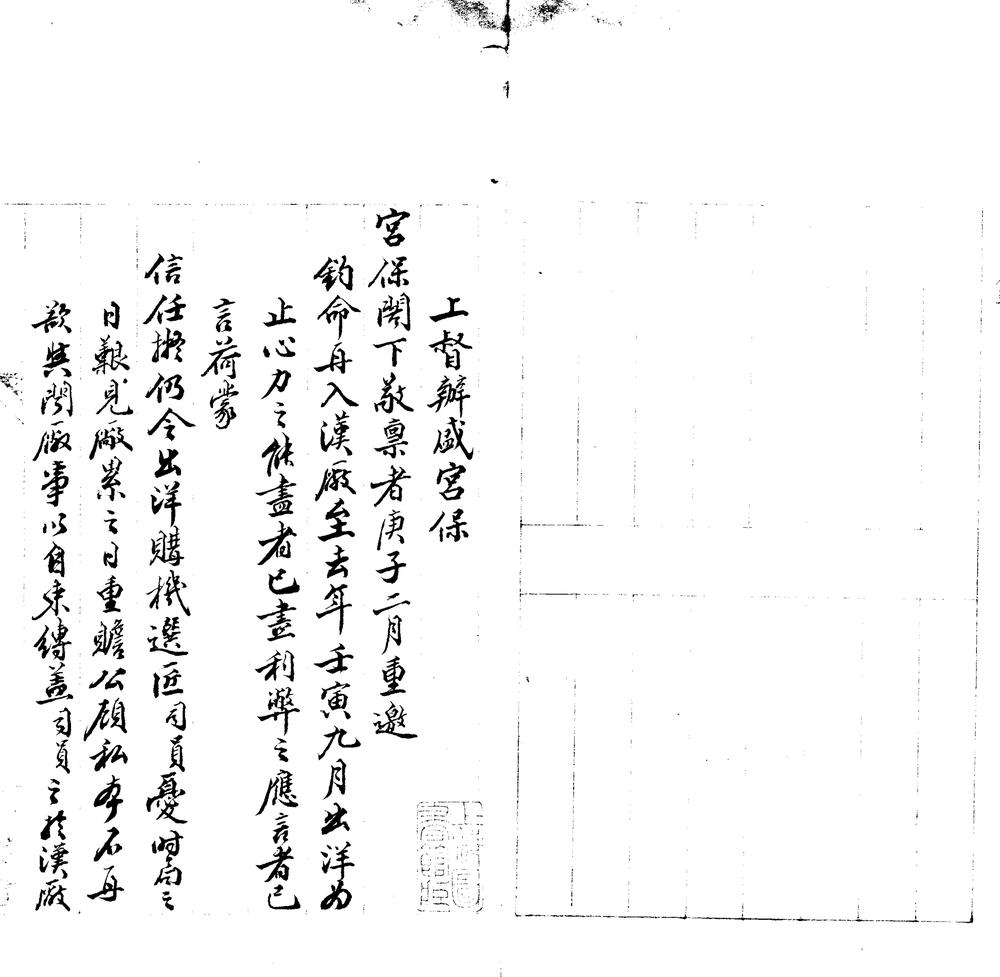 上督辦盛宮保
宮保閣下敬禀者庚子二月重邀
鈞命再入漢廠至去年壬寅九月出洋為
止心力之能盡者已盡利弊之應言者已
言荷蒙
信任擬仍令出洋購機選匠司員憂時局之
日艱見廠累之日重瞻公顧私本不再
欲與聞廠事以自束縛蓋司員之於漢廠